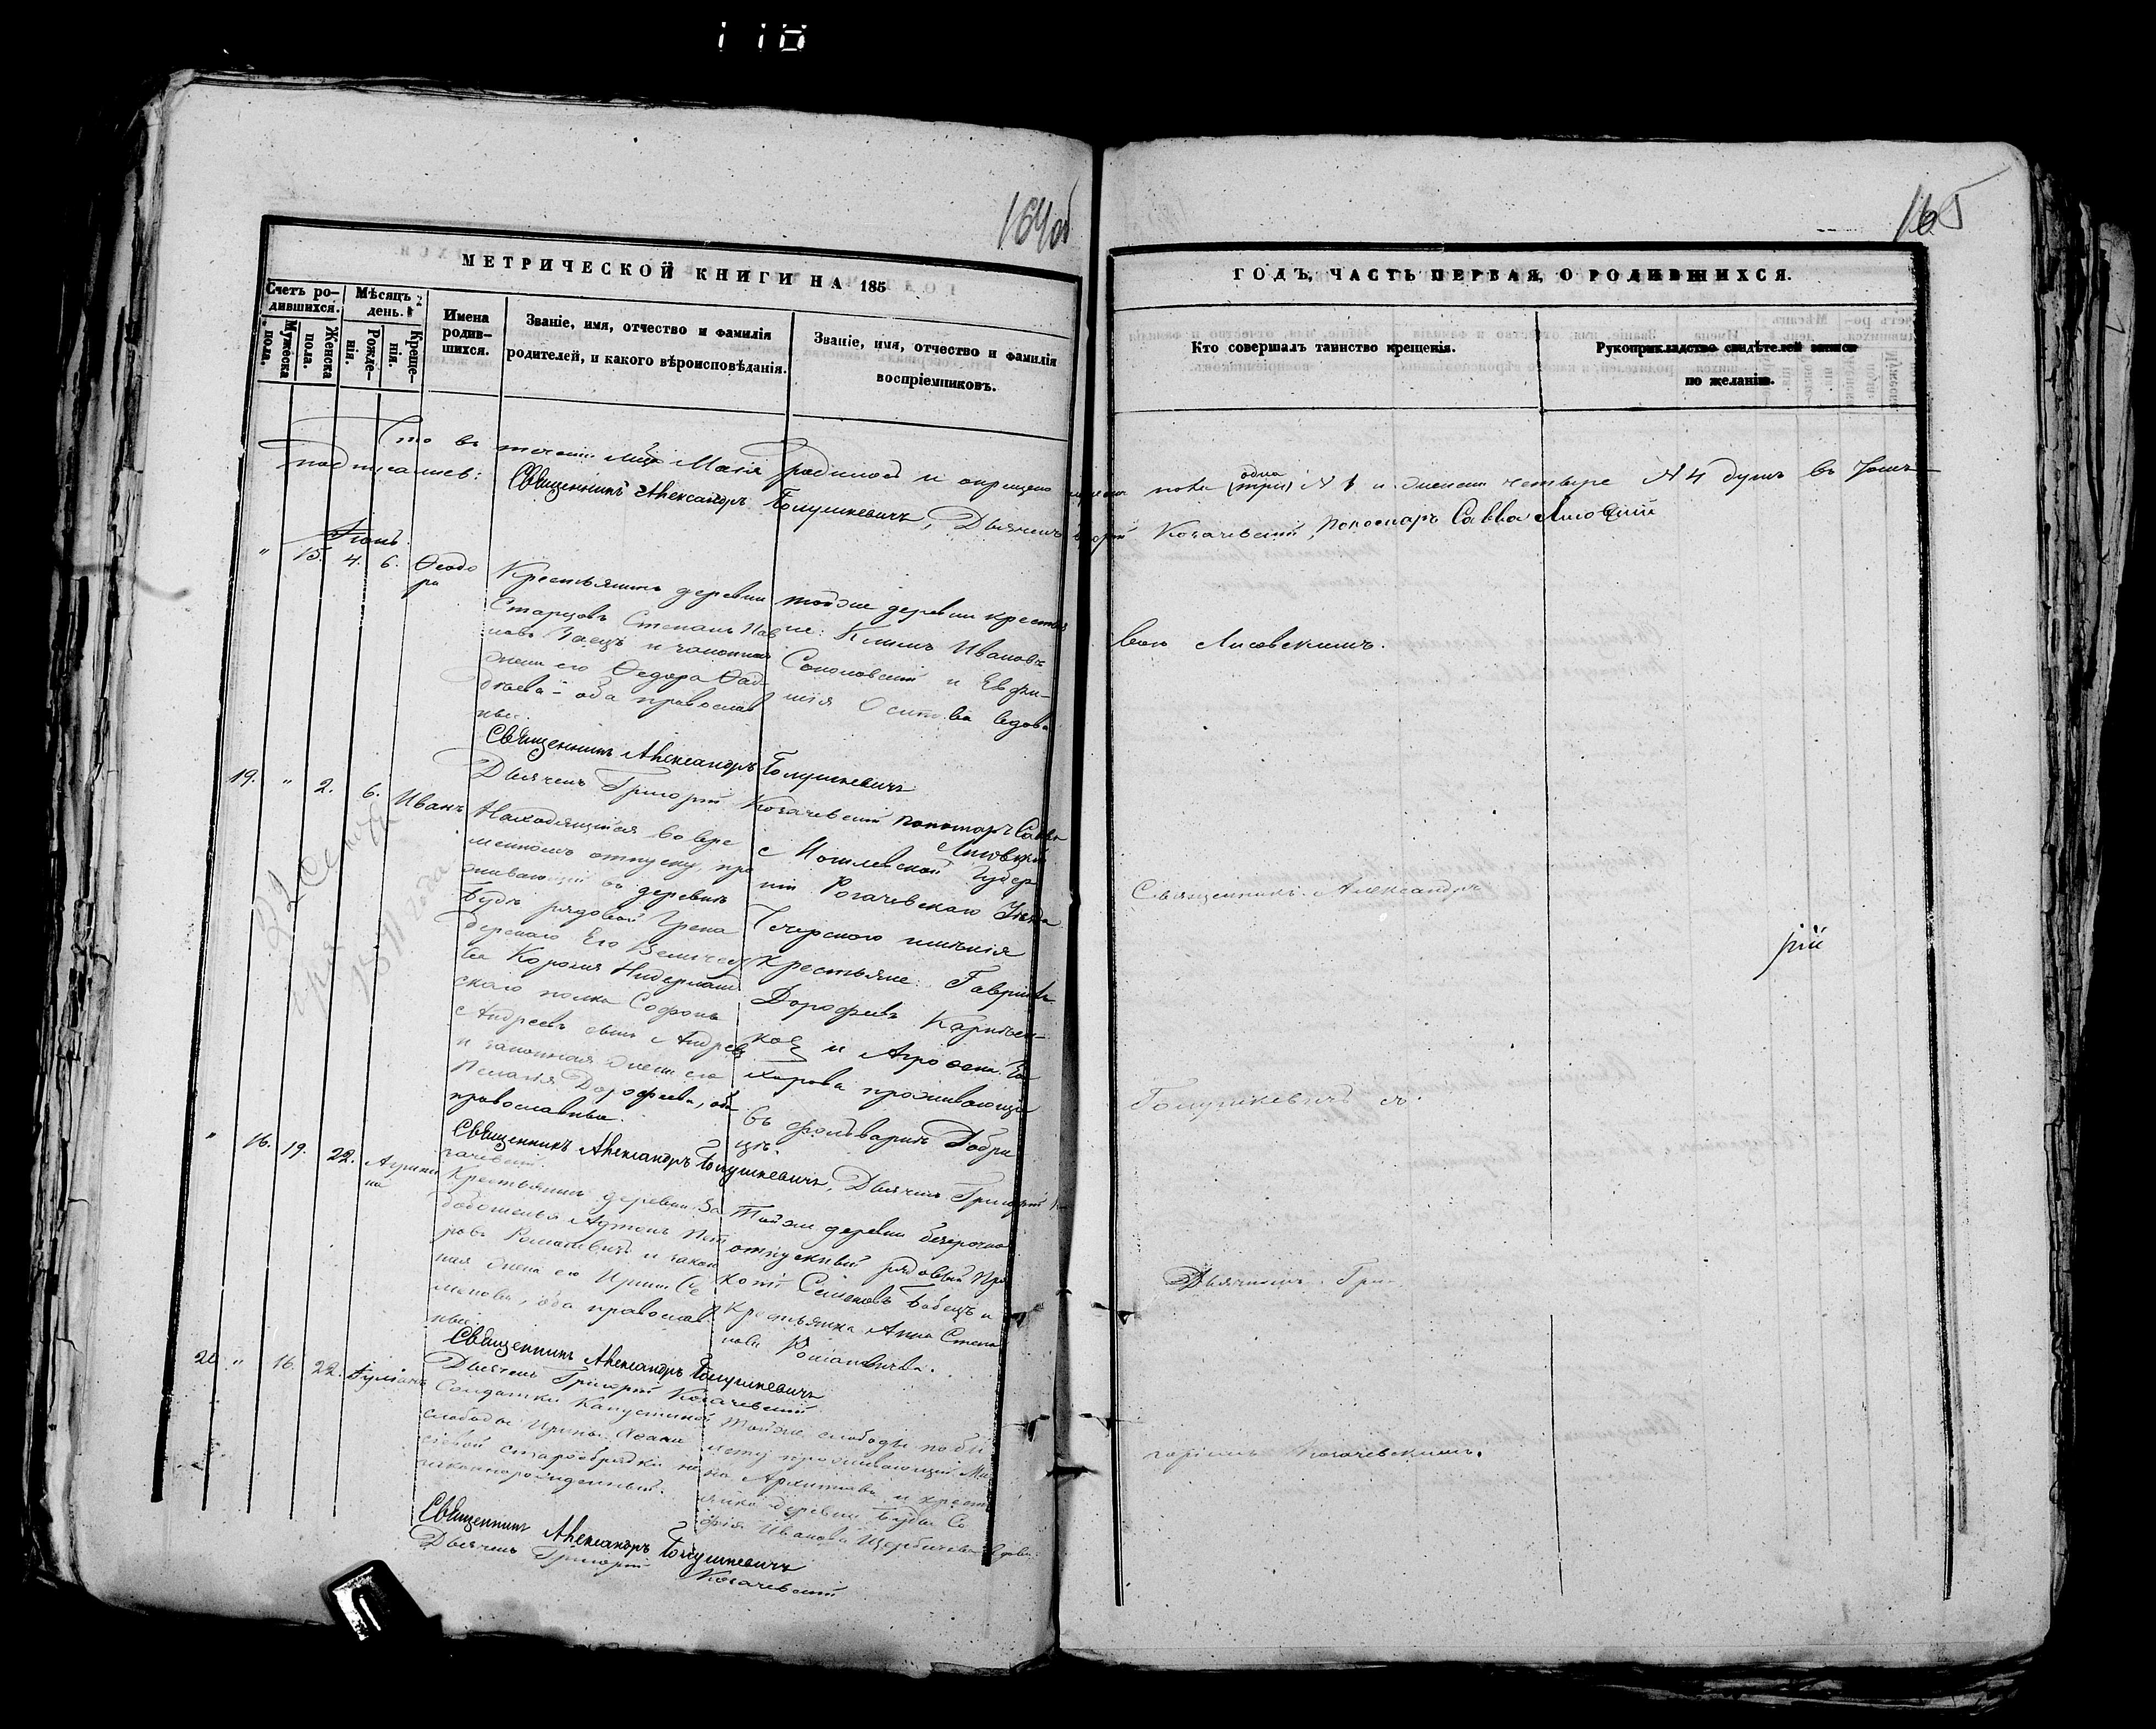 110
164об
165
МЕТРИЧЕСКОЙ КНИГИ НА 185
ГОДЪ, ЧАСТЬ ПЕРВАЯ, О РОДИВШИХСЯ.
Счетъ ро-
дившихся.
Мужеска
пола.
Женска
пола.
Мѣсяцъ и
день.
Рожде-
нія.
Креще-
нія.
Имена
родив-
шихся.
Званіе, имя, отчество и фамилія
родителей, и какого вѣроисповѣданія.
Званіе, имя, отчество и фамилія
воспріемниковъ.
Кто совершалъ таинство крещенія.
Рукоприкладство свидѣтелей записи
по желанію.
Что въ теченіи Маія родилось и окрещено
пола (три) одна № 1 и женска четыре № 4 душъ въ томъ
подписались: Священникъ Александръ Голушкевичъ, Дьячекъ
Козачевскій, Пономаръ Савва Лисовскій
Іюнь.
" 15. 4. 6. Ѳеодо
ра
Крестьянинъ деревни
Старцовъ Степанъ Пав
ловъ Заецъ и законная
жена его Ѳедора Ѳад-
дѣева оба православ
ные.
тойже деревни крестья
не: Климъ Ивановъ
Соколовскій и Евфи-
мія Осипова вдова
вою Лисовскимъ.
Священникъ Александръ Голушкевичъ
Дьячекъ Григорій Козачевскій Пономаръ Савва
Лисовскій
19. " 2. 6. Иванъ
22
1871 года
Находящійся во вре
менномъ отпуску, про
живающій въ деревни
Будѣ рядовой Грена
дерскаго Его Величест
ва Короля Нидерланд
скаго полка Софонъ
Андреевъ сынъ Андреевъ
и законная жена его
Пелагія Дорофеева, оба
православные.
Могилевской Губер
ніи Рогачевскаго Уѣзда
Чечерскаго имѣнія
крестьяне: Гавріилъ
Дорофеевъ
и
харова проживающіе
въ фольваркѣ Добри
цѣ.
Священникъ Александръ
Голушкевичъ съ
Дьячкомъ Гри
горіемъ Козачевскимъ.
рій
Священникъ Александръ Голушкевичъ, Дьячекъ Григорій Ко
зачевскій.
" 16. 19. 22. Агрипи
на
Крестьянинъ деревни За
болотья Пет
ровъ Романевичъ и закон
ная жена его Ирина Се
менова, оба православ
ные.
Тойже деревни безсрочно
отпускный рядовый Про
копій Семеновъ Бобецъ и
крестьянка Анна Степа
нова Романовичева.
Священникъ Александръ Голушкевичъ
Дьячекъ Григорій Козачевскій
20 " 16. 22. Іуліанъ
Солдатки Капустиной
слободы Ирины Аѳана
сіевой старобрядки не
законнорожденный.
Тойже слободы по би
лету проживающій
и кресть
янка деревни Буды Со
фія Иванова Щербичева вдова
Священникъ Александръ Голушкевичъ
Дьячекъ Григорій Козачевскій